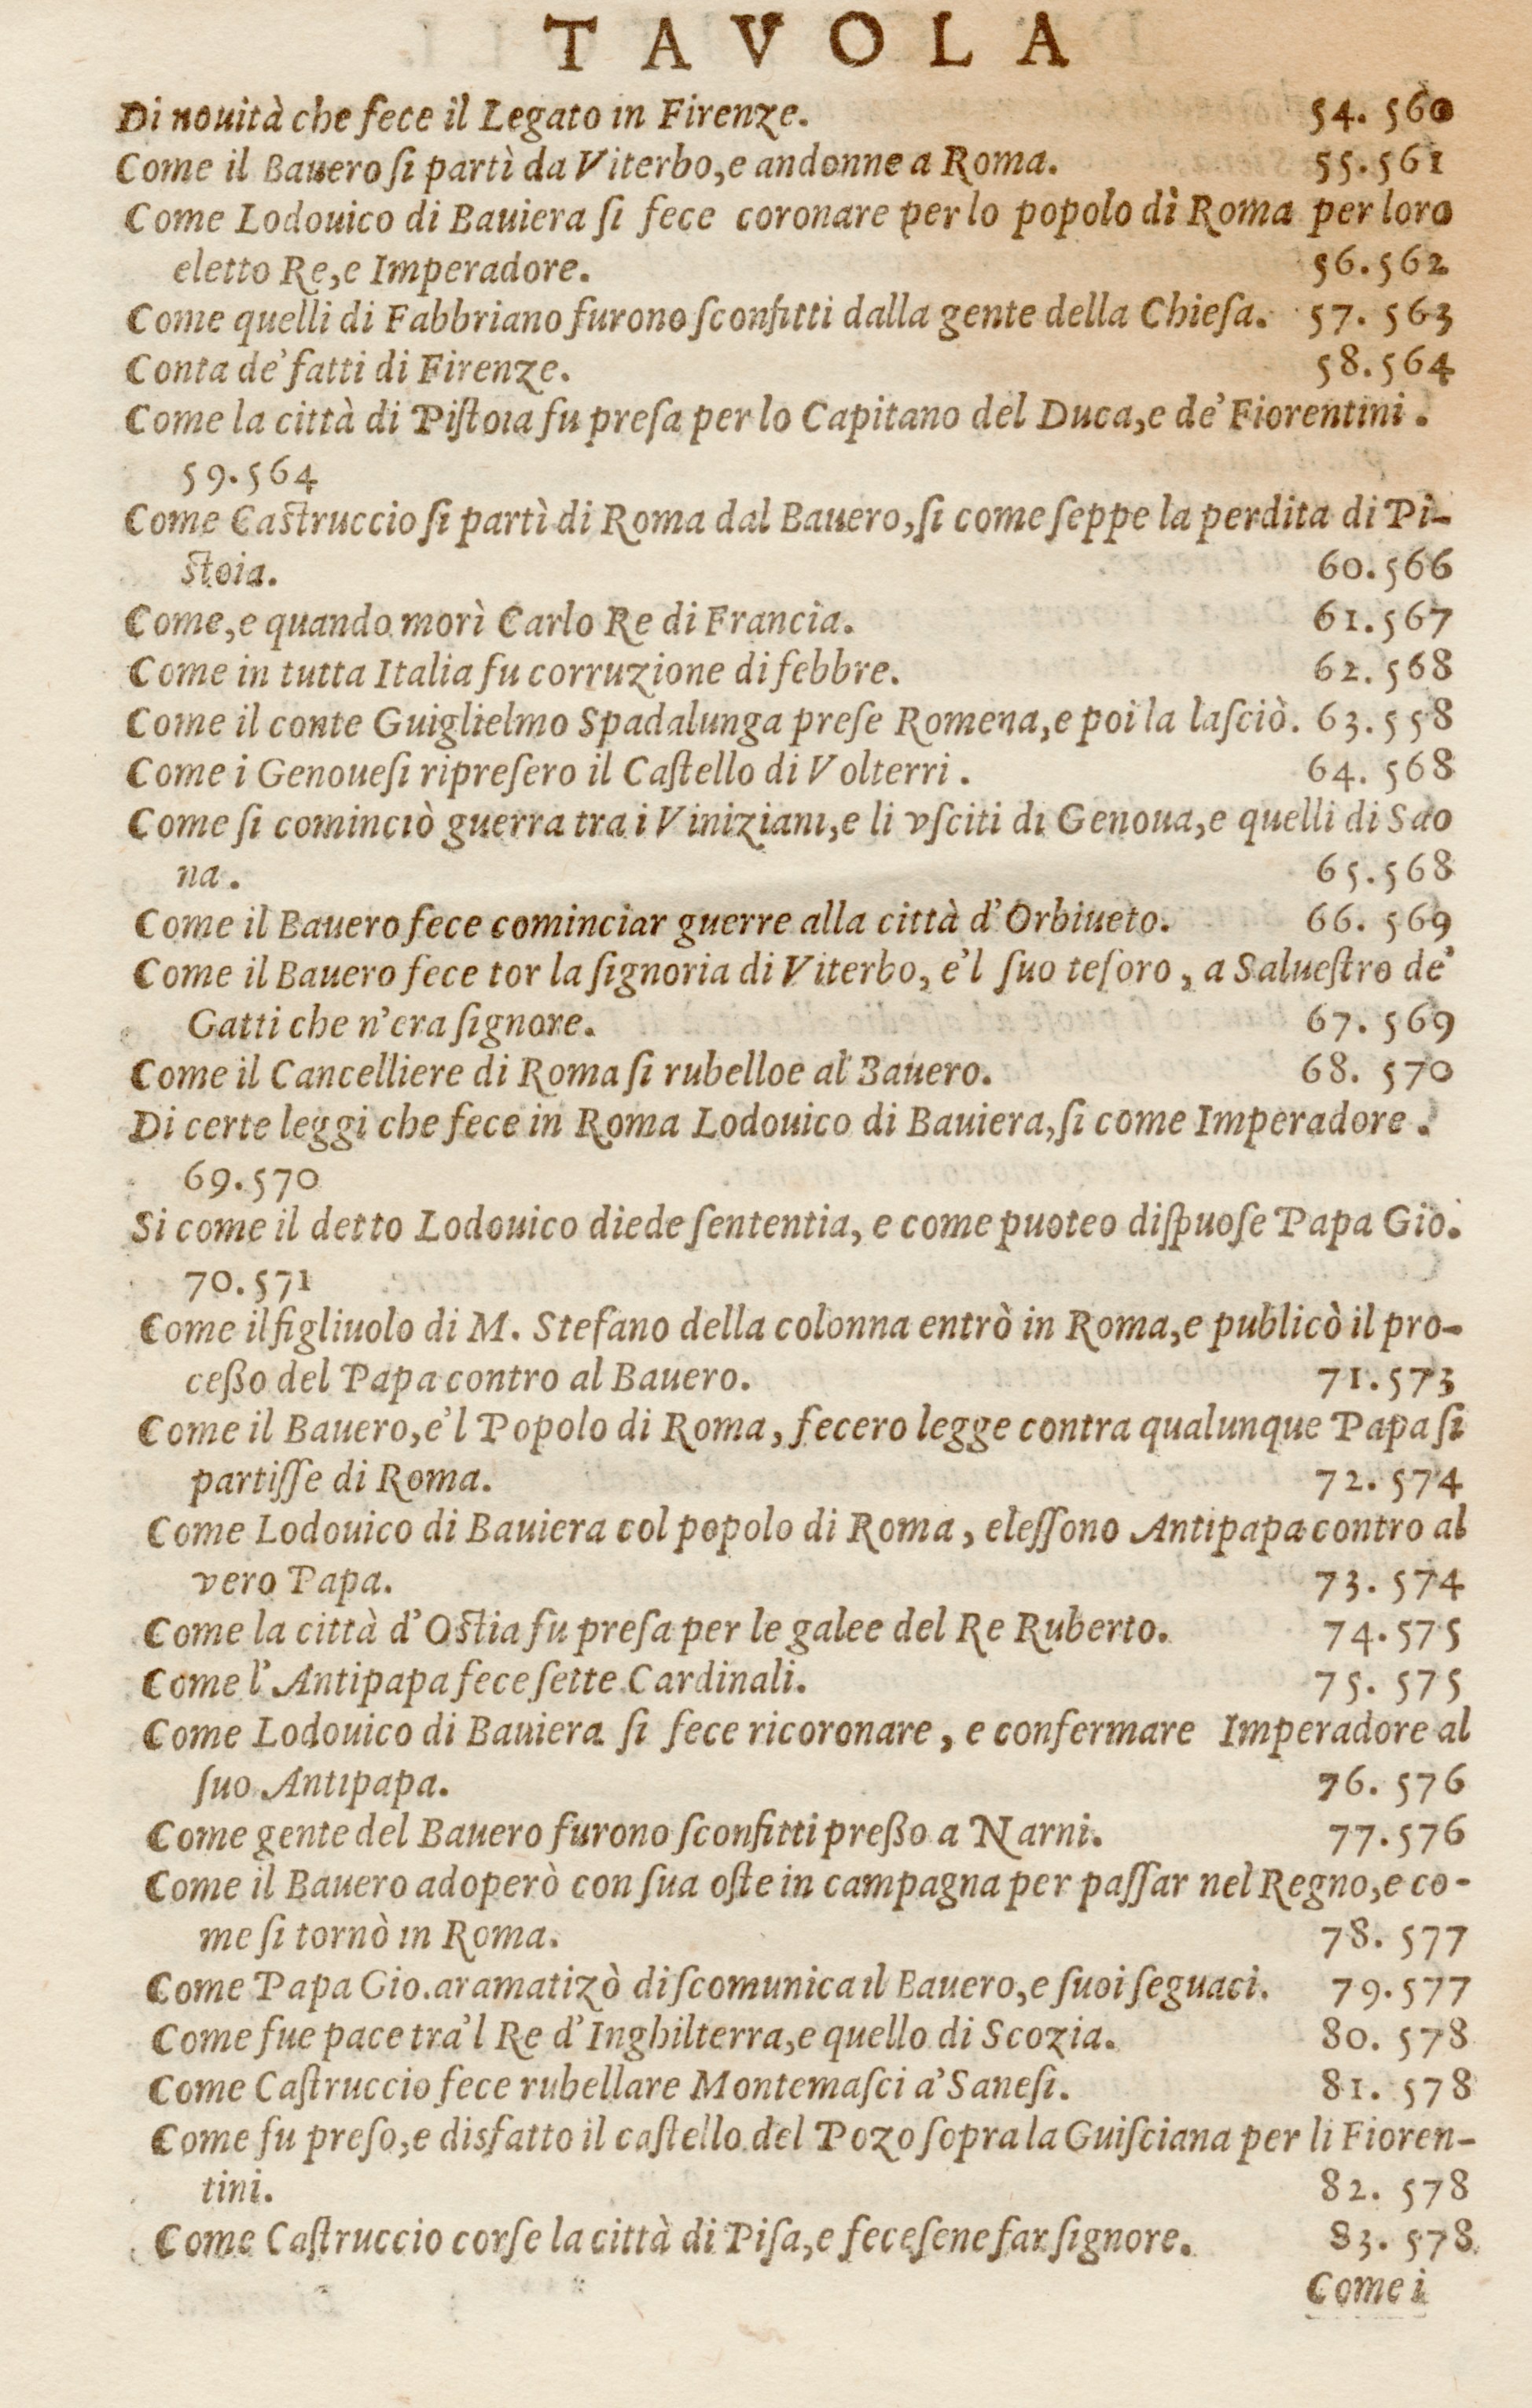 TAVOLA
Di nouità che fece il Legato in Firenze. 54. 560
Come il Bauero ſi partì da Viterbo,e andonne a Roma. 55.561
Come Lodouico di Bauiera ſi fece coronare per lo popolo dì Roma per loro
eletto Re,e Imperadore. 56.562
Come quelli di Fabbriano furono ſconfitti dalla gente della Chieſa. 57. 563
Conta de' fatti di Firenze. 58.564
Come la città di Piſtoia fu preſa per lo Capitano del Duca,e de' Fiorentini .
59.564
Come Caſtruccio ſi partì di Roma dal Bauero,ſi come ſeppe la perdita di Pi-
ſtoia. 60.566
Come,e quando morì Carlo Re di Francia. 61.567
Come in tutta Italia fu corruzione di febbre. 62.568
Come il conte Guiglielmo Spadalunga preſe Romena,e poi la laſciò. 63.558
Come i Genoueſi ripreſero il Caſtello di Volterri . 64. 568
Come ſi cominciò guerra tra i Viniziani,e li vſciti di Genoua,e quelli di Sao
na. 65.568
Come il Bauero fece cominciar guerre alla città d'Orbiueto. 66. 569
Come il Bauero fece tor la ſignoria di Viterbo, e'l ſuo teſoro , a Salueſtro de'
Gatti che n'era ſignore. 67. 569
Come il Cancelliere di Roma ſi rubelloe al Bauero. 68. 570
Di certe leggi che fece in Roma Lodouico di Bauiera,ſi come Imperadore .
69.570
Si come il detto Lodouico diede ſententia, e come puoteo diſpuoſe Papa Gio.
70.571
Come il figliuolo di M. Stefano della colonna entrò in Roma,e publicò il pro-
ceßo del Papa contro al Bauero. 71.573
Come il Bauero,e'l Popolo di Roma, fecero legge contra qualunque Papa ſi
partiſſe di Roma. 72.574
Come Lodouico di Bauiera col popolo di Roma, eleſſono Antipapa contro al
vero Papa. 73. 574
Come la città d'Oſtia fu preſa per le galee del Re Ruberto. 74.575
Come l'Antipapa fece ſette Cardinali. 75. 575
Come Lodouico di Bauiera ſi fece ricoronare, e confermare Imperadore al
ſuo Antipapa. 76. 576
Come gente del Bauero furono ſconfitti preßo a Narni. 77.576
Come il Bauero adoperò con ſua oſte in campagna per paſſar nel Regno,e co-
me ſi tornò in Roma. 78. 577
Come Papa Gio.aramatizò di ſcomunica il Bauero,e ſuoi ſeguaci. 79.577
Come fue pace tra'l Re d'Inghilterra,e quello di Scozia. 80. 578
Come Caſtruccio fece rubellare Montemaſci a' Saneſi. 81. 578
Come fu preſo,e disfatto il caſtello del Pozo ſopra la Guiſciana per li Fioren-
tini. 82. 578
Come Caſtruccio corſe la città di Piſa,e feceſene far ſignore. 83. 578
Come i